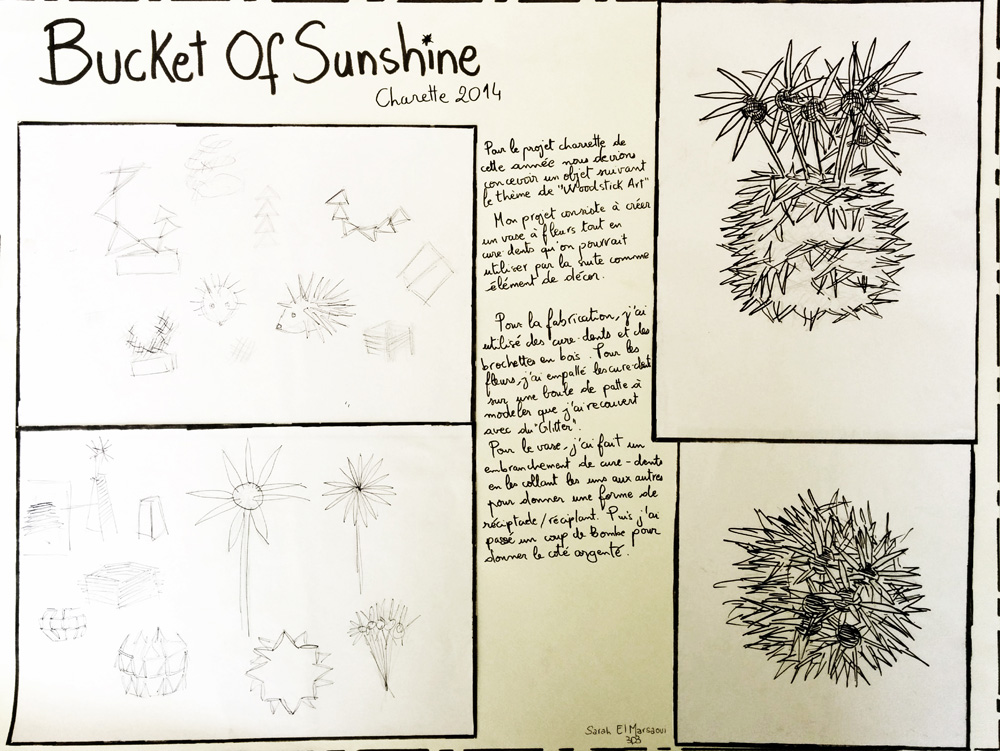 Bucket Of Sunshine
Charette 2014
Pour le projet charrette de
cette année nous devions
concevoir un objet suivant
le thème de "Woodstick Art"
Mon projet consiste à créer
un vase à fleurs tout en
cure-dents qu'on pourrait
utiliser par la suite comme
élément de décor.
Pour la fabrication, j'ai
utilisé des cure-dents et des
brochettes en bois. Pour les
fleurs, j'ai empallé les cure-dent
sur une boule de patte à
modeler que j'ai recouvert
avec du "Glitter".
Pour le vase, j'ai fait un
embranchement de cure-dents
en les collant les uns aux autres
pour donner une forme de
réciptacle/réciplant. Puis j'ai
passé un coup de Bombe pour
donner le coté argenté.
Sarah El Marsaoui
3C3